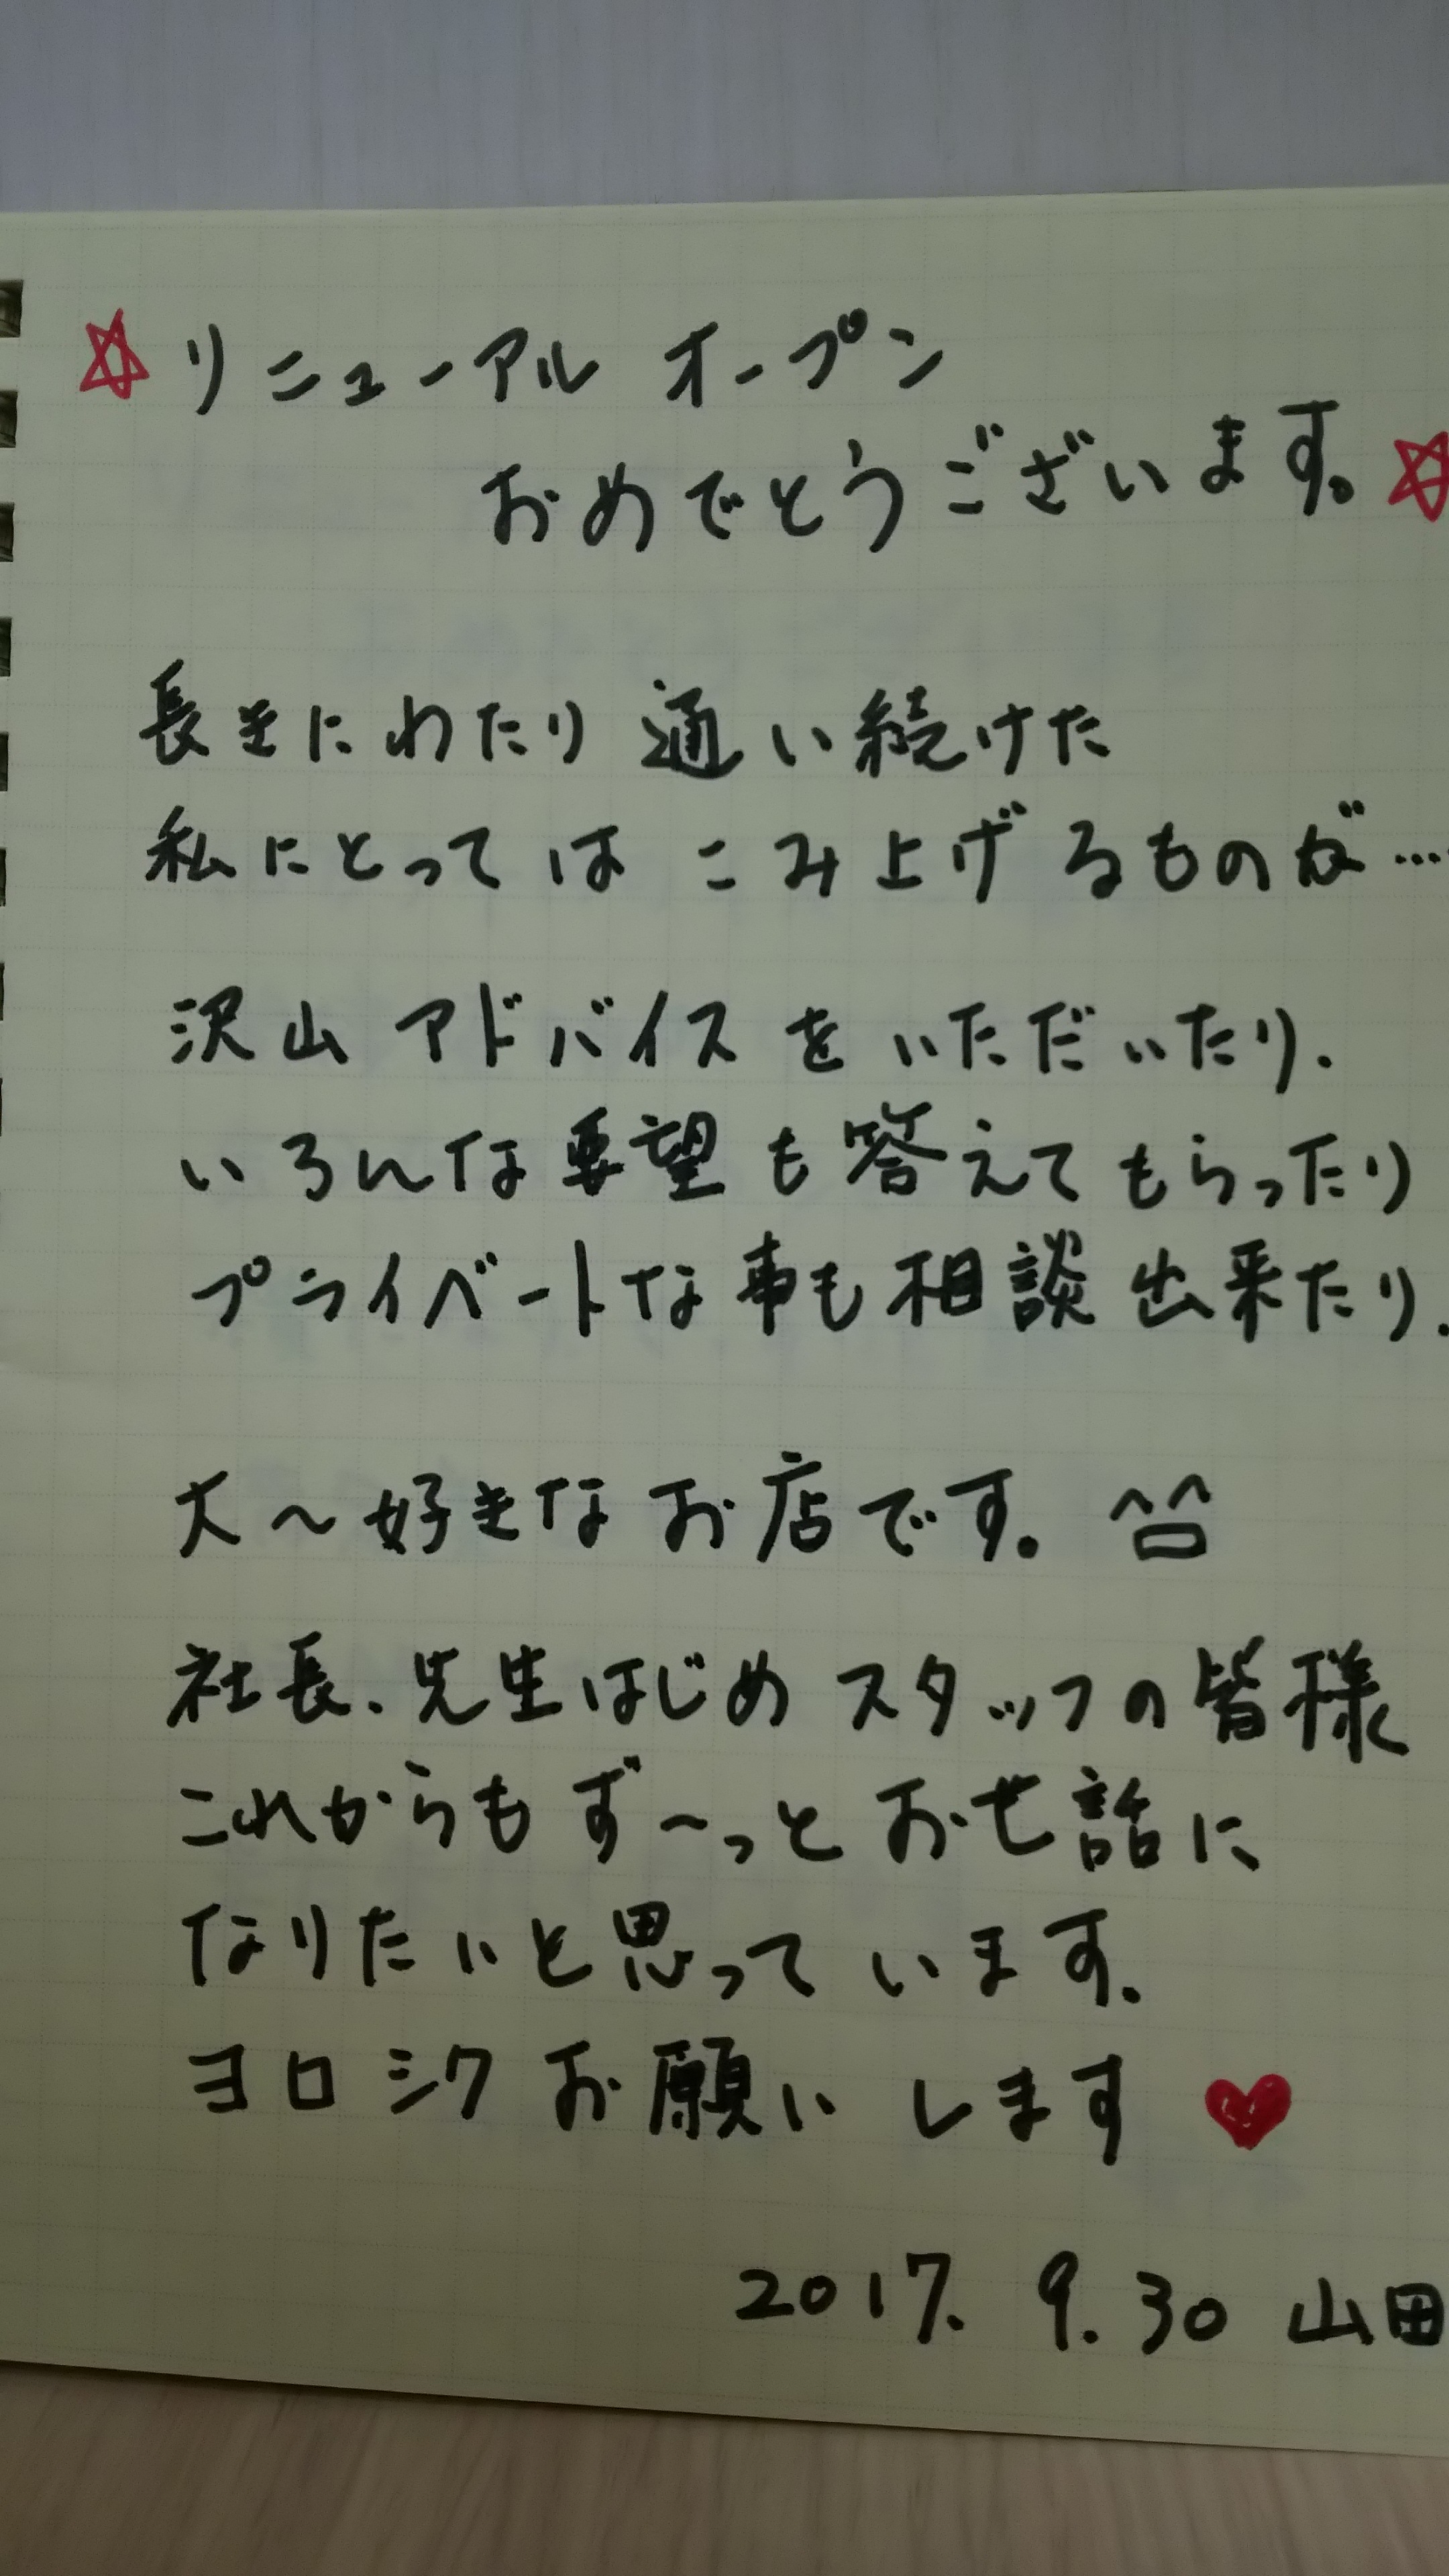 ☆リニューアル オープン
おめでとうございます。☆
長きにわたり通い続けた
私にとっては こみ上げるものが…
沢山アドバイスをいただいたり、
いろんな要望も答えてもらったり
プライベートな事も相談出来たり、
大〜好きなお店です。^□^
社長、先生はじめスタッフの皆様
これからもず〜っとお世話に
なりたいと思っています。
ヨロシクお願いします♥
2017. 9. 30 山田